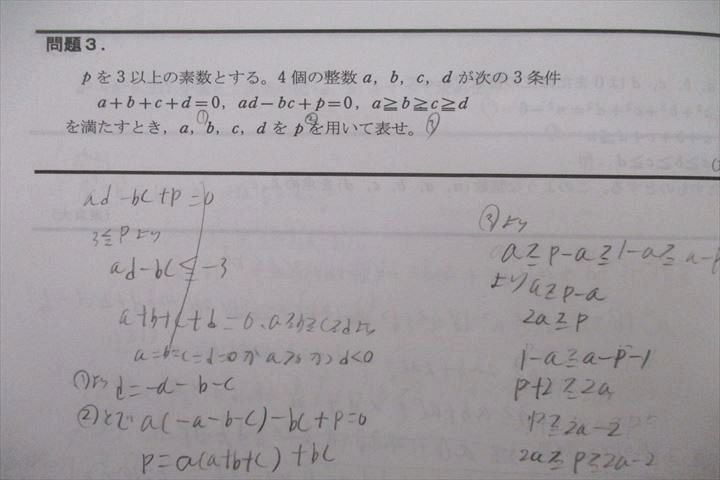 問題3.
pを3以上の素数とする。4個の整数a, b, c, dが次の3条件
a+b+c+d=0, ad-bc+p=0, a≧b≧c≧d
① ② ③
を満たすとき, a, b, c, dをpを用いて表せ。
ad-bc+p=0
3≦pより
ad-bc≦-3
a+b+c+d=0.a≧b≧c≧dより
a=b=c=d=0か a>0かつd<0
①より d=-a-b-c
②とで a(-a-b-c)-bc+p=0
p=a(a+b+c)+bc
③より
a≧p-a≧1-a≧a-p
より a≧p-a
2a≧p
1-a≧a-p-1
p+2≧2a
p≧2a-2
2a≧p≧2a-2